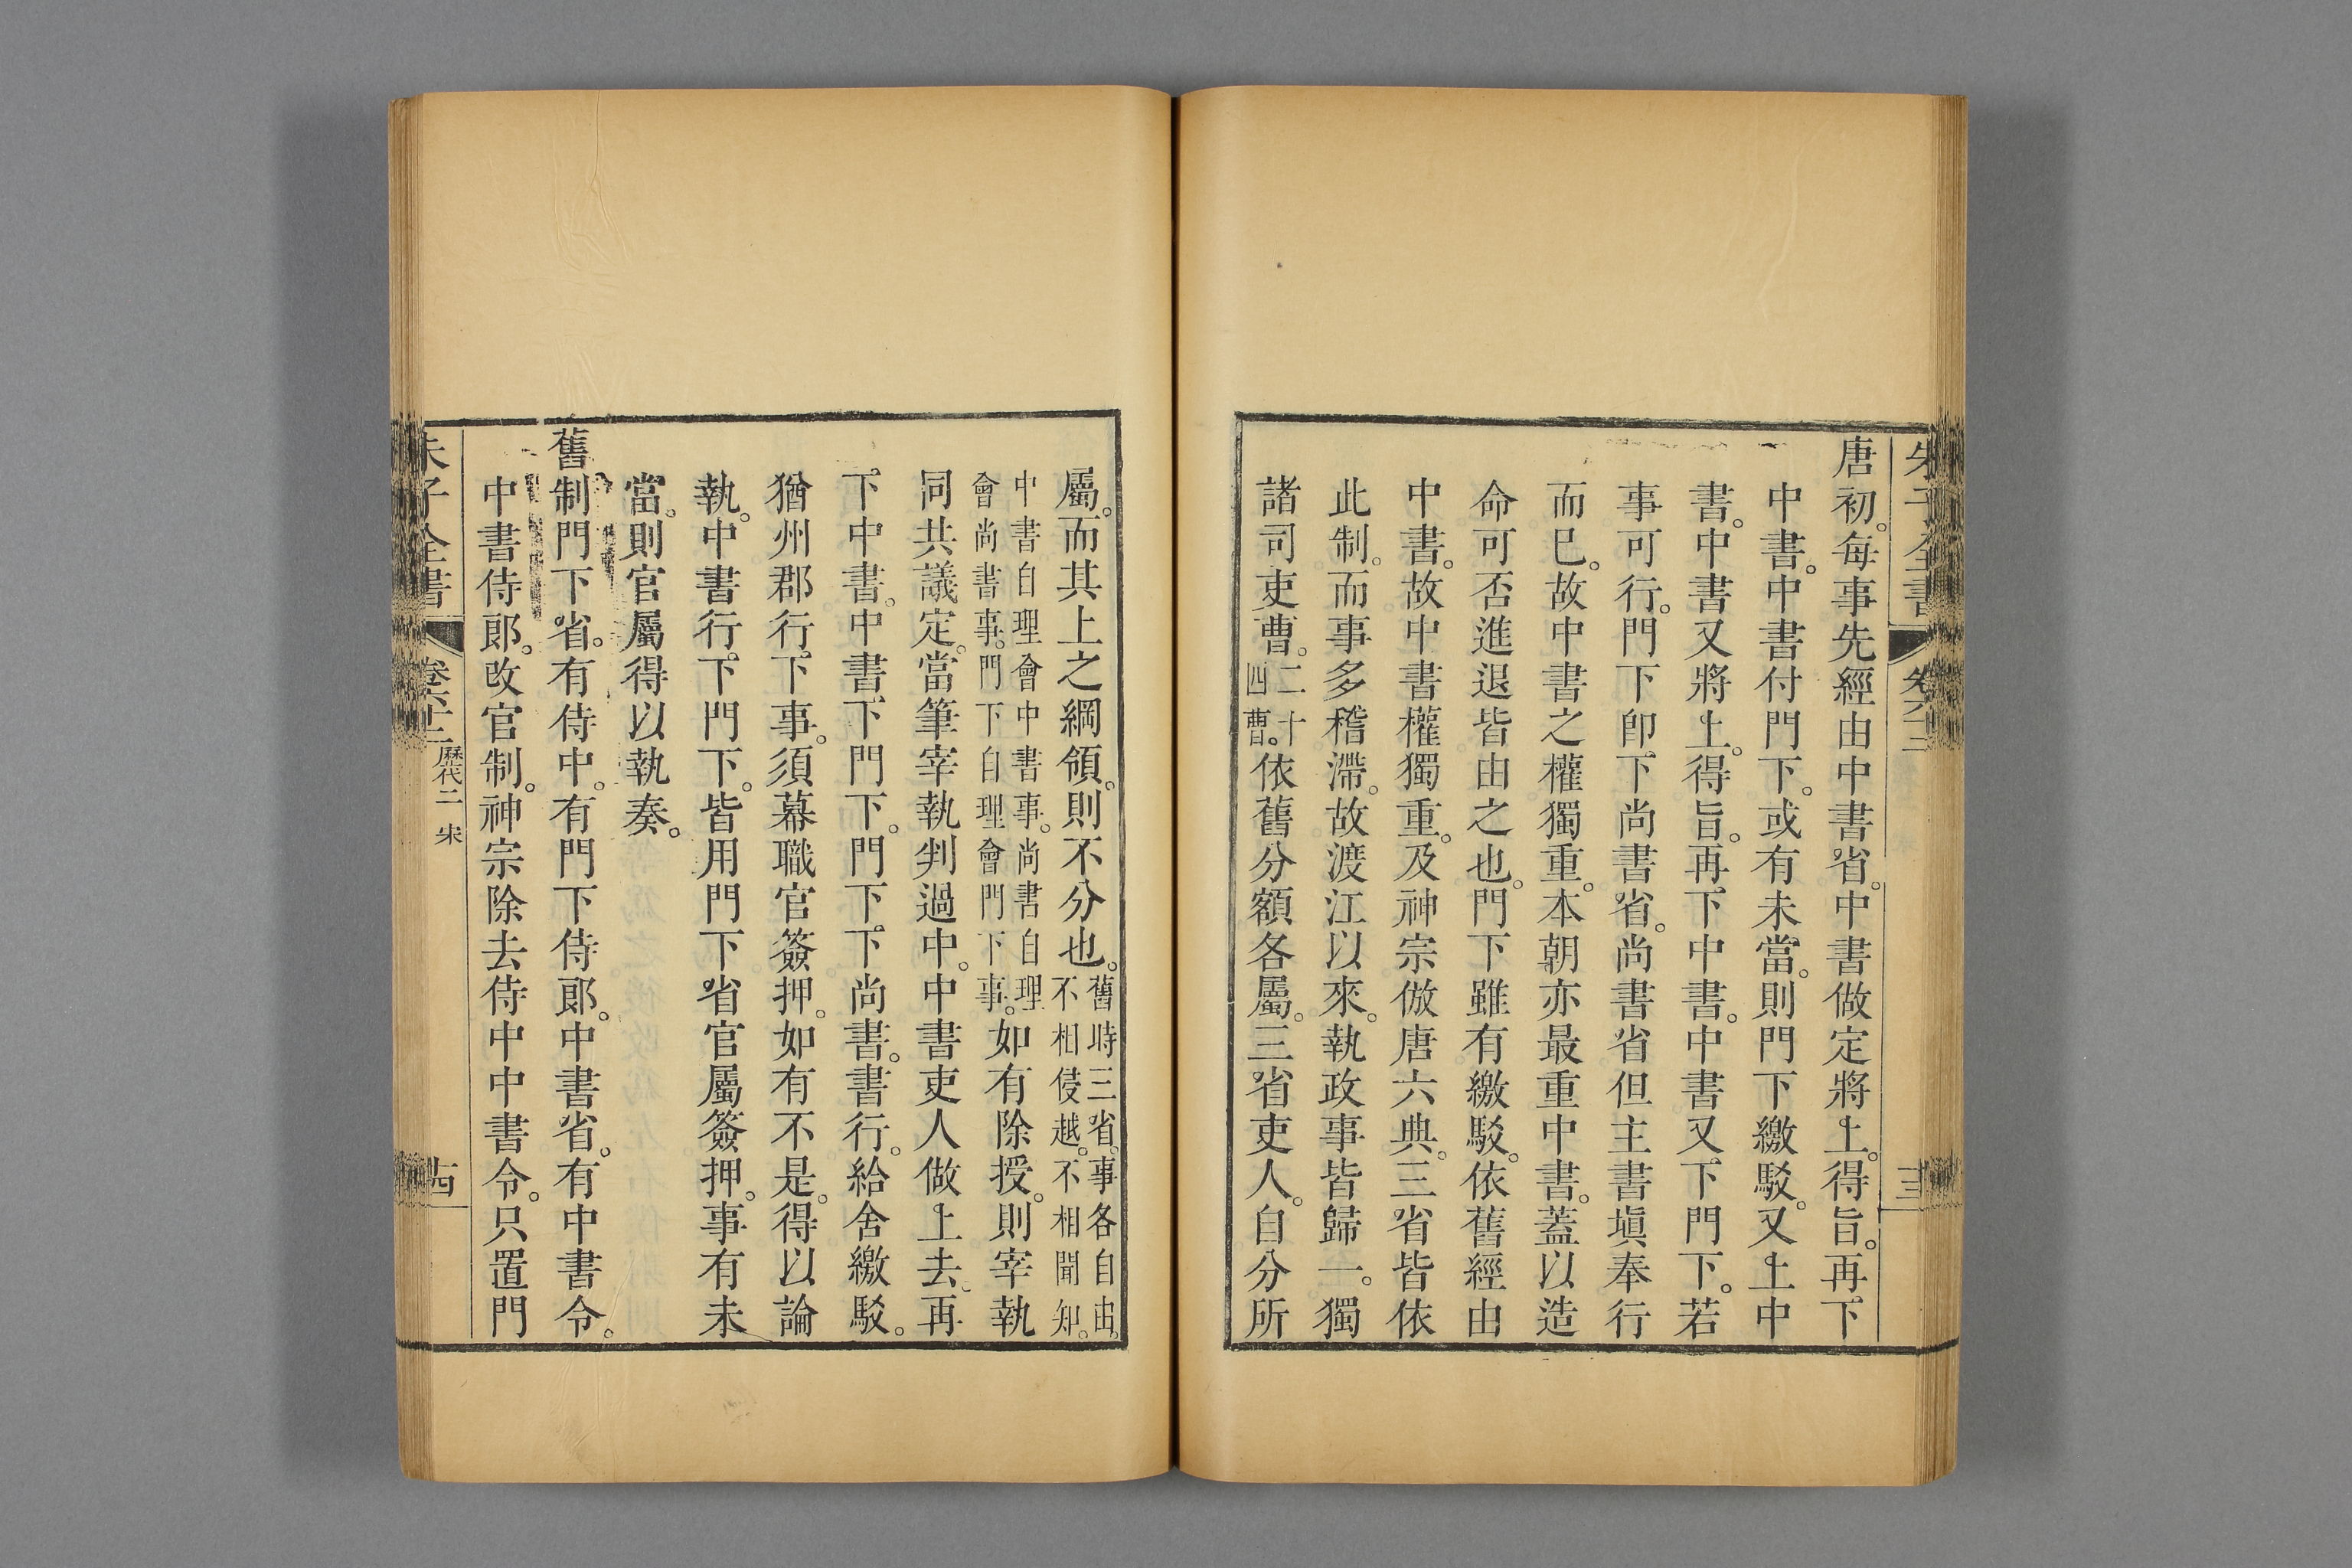 唐初。每事先經由中書省。中書做定將上。得旨。再下
中書。中書付門下。或有未當。則門下繳駁。又上中
書。中書又將上。得旨。再下中書。中書又下門下。若
事可行。門下卽下尚書省。尚書省但主書塡奉行
而已。故中書之權獨重。本朝亦最重中書。蓋以造
命可否進退皆由之也。門下雖有繳駁。依舊經由
中書。故中書權獨重。及神宗倣唐六典。三省皆依
此制。而事多稽滯。故渡江以來。執政事皆歸一。獨
諸司吏曹。二十四曹。依舊分額各屬。三省吏人。自分所
屬。而其上之綱領。則不分也。舊時三省。事各自由。不相侵越。不相聞知。
中書自理會中書事。尚書自理會尚書事。門下自理會門下事。如有除授。則宰執
同共議定。當筆宰執判過中。中書吏人做上去。再
下中書。中書下門下。門下下尚書。書行。給舍繳駁。
猶州郡行下事。須幕職官簽押。如有不是。得以論
執。中書行下門下。皆用門下省官屬簽押。事有未
當。則官屬得以執奏。
舊制門下省。有侍中。有門下侍郎。中書省。有中書令。
中書侍郎。改官制。神宗除去侍中中書令。只置門
朱子全書 卷六十二 歷代二 宋 十四